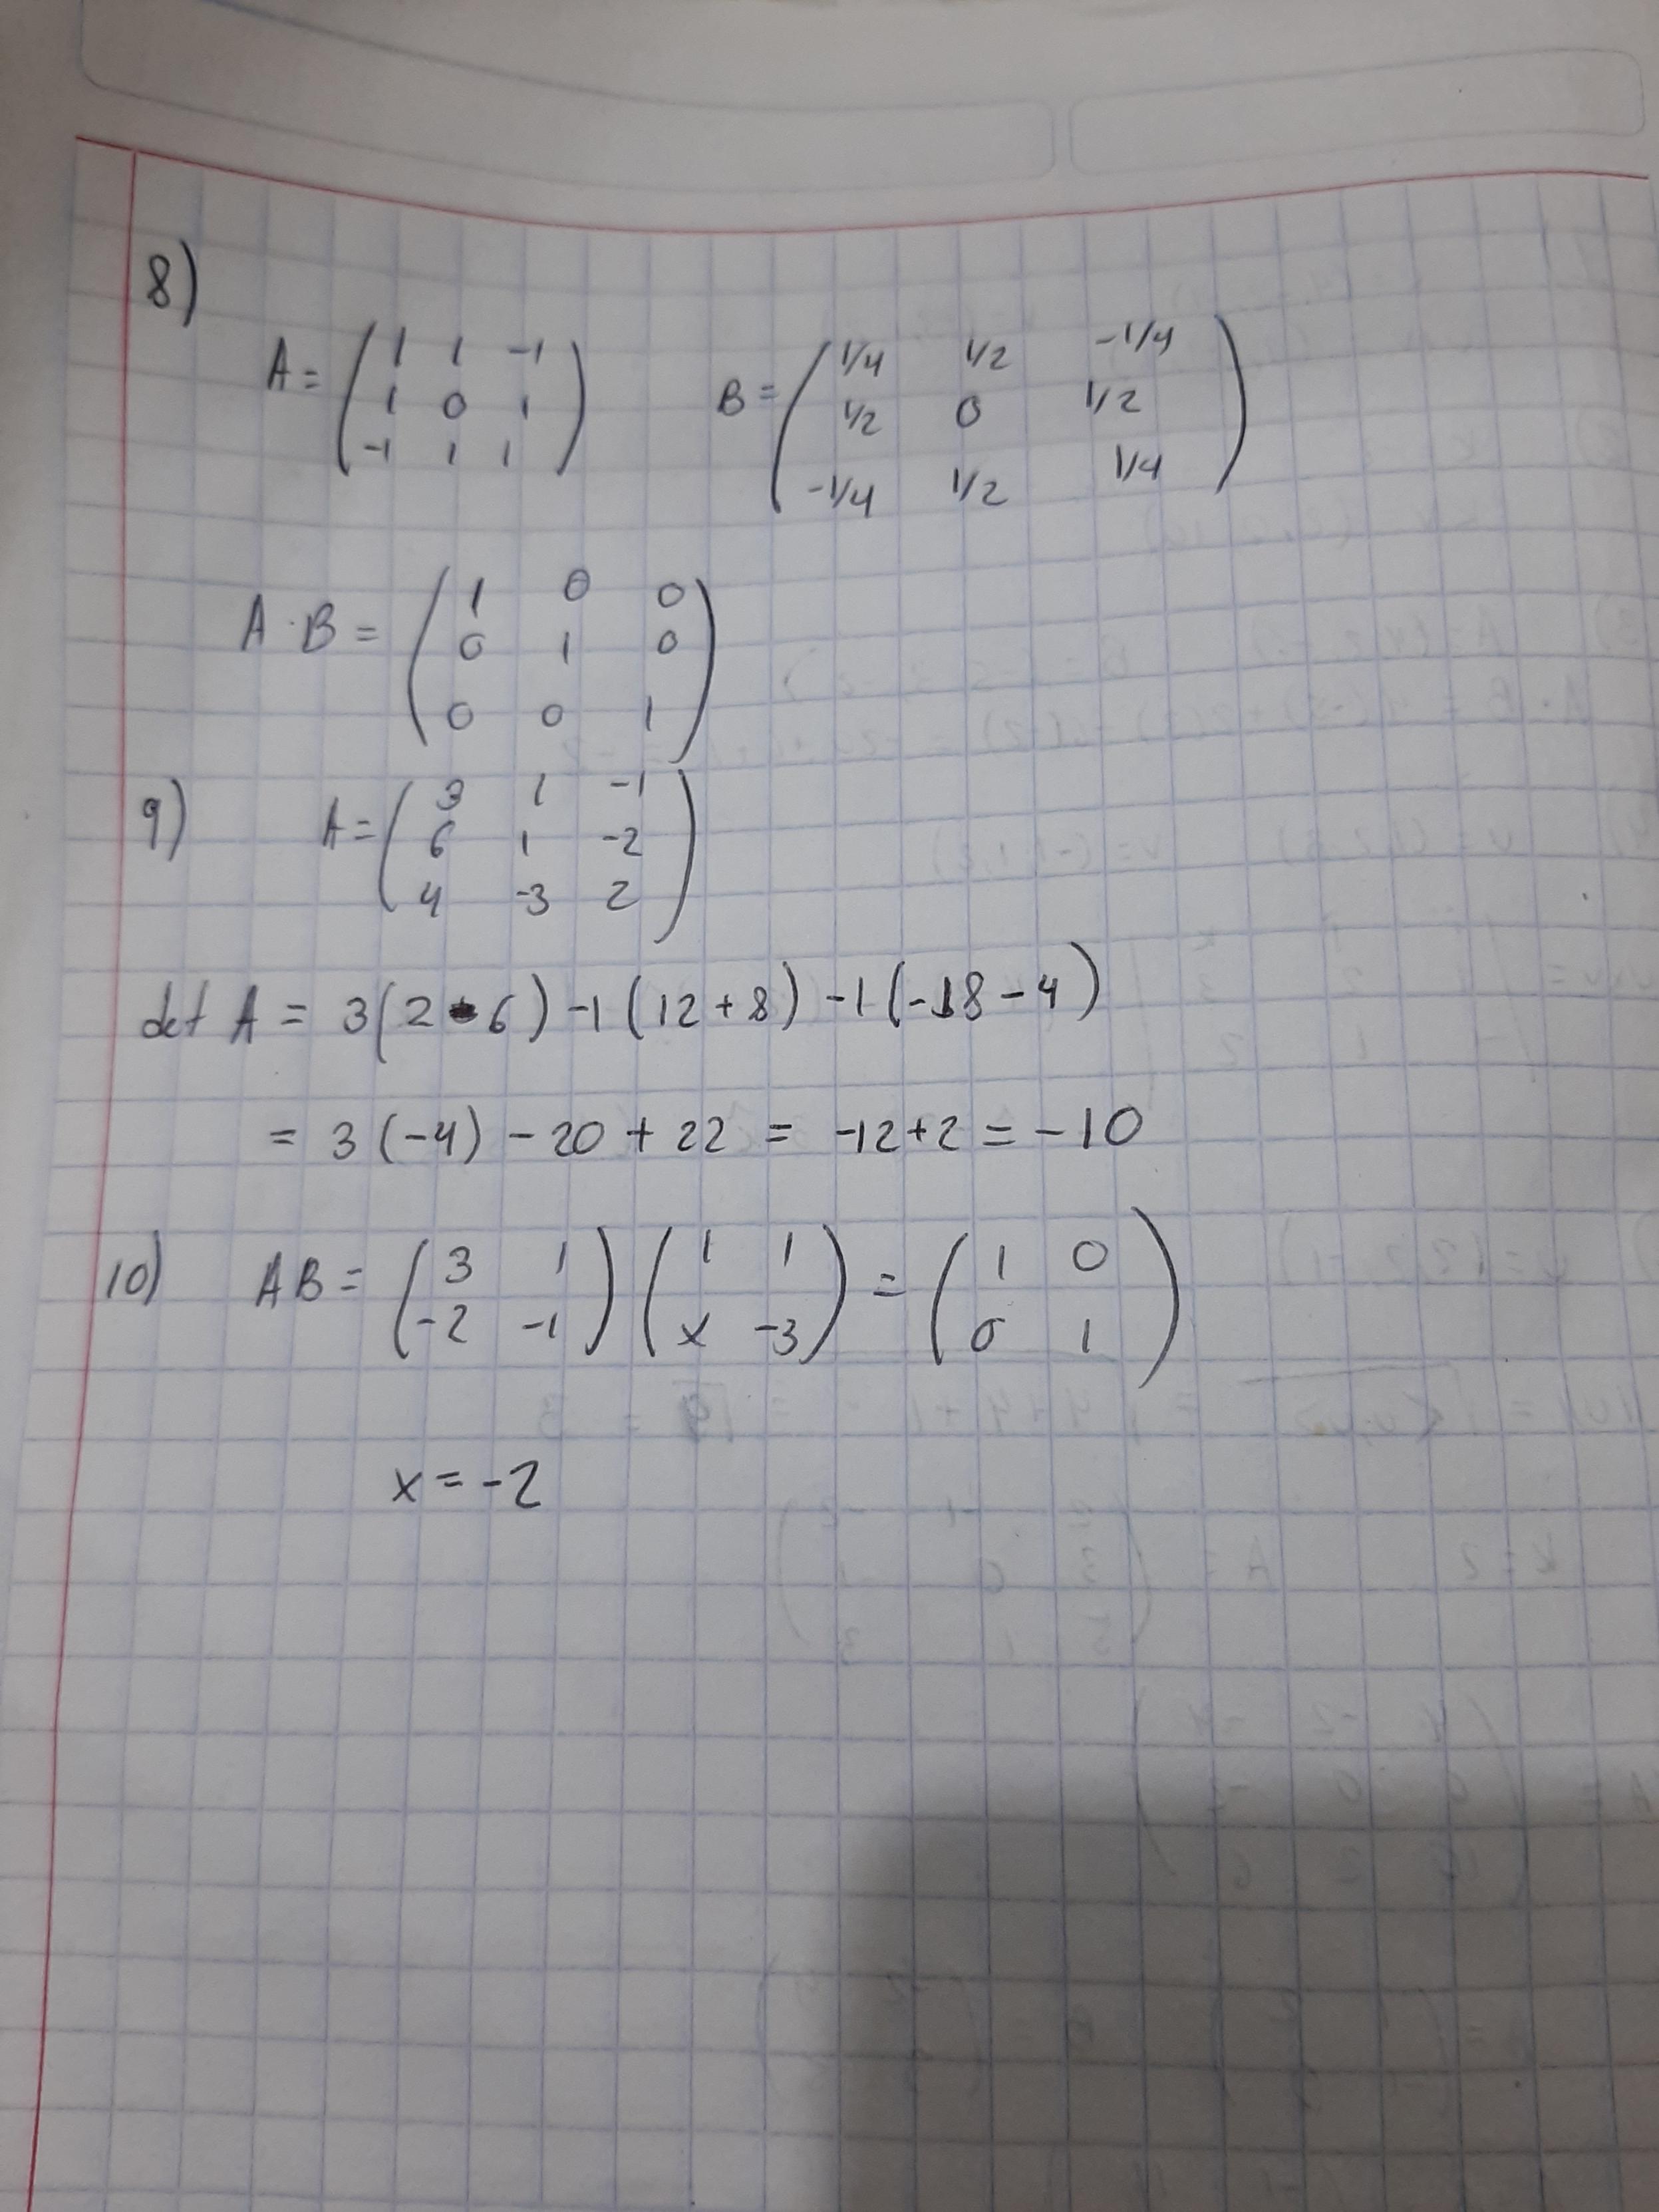 8)
A = ( 1 1 -1
1 0 1
-1 1 1 )
B = ( 1/4 1/2 -1/4
1/2 0 1/2
-1/4 1/2 1/4 )
A · B = ( 1 0 0
0 1 0
0 0 1 )
9) A = ( 3 1 -1
6 1 -2
4 -3 2 )
det A = 3(2 - 6) -1 (12 + 8) -1 (-18 - 4)
= 3 (-4) - 20 + 22 = -12 + 2 = -10
10) AB = ( 3 1
-2 -1 ) ( 1 1
x -3 ) = ( 1 0
0 1 )
x = -2